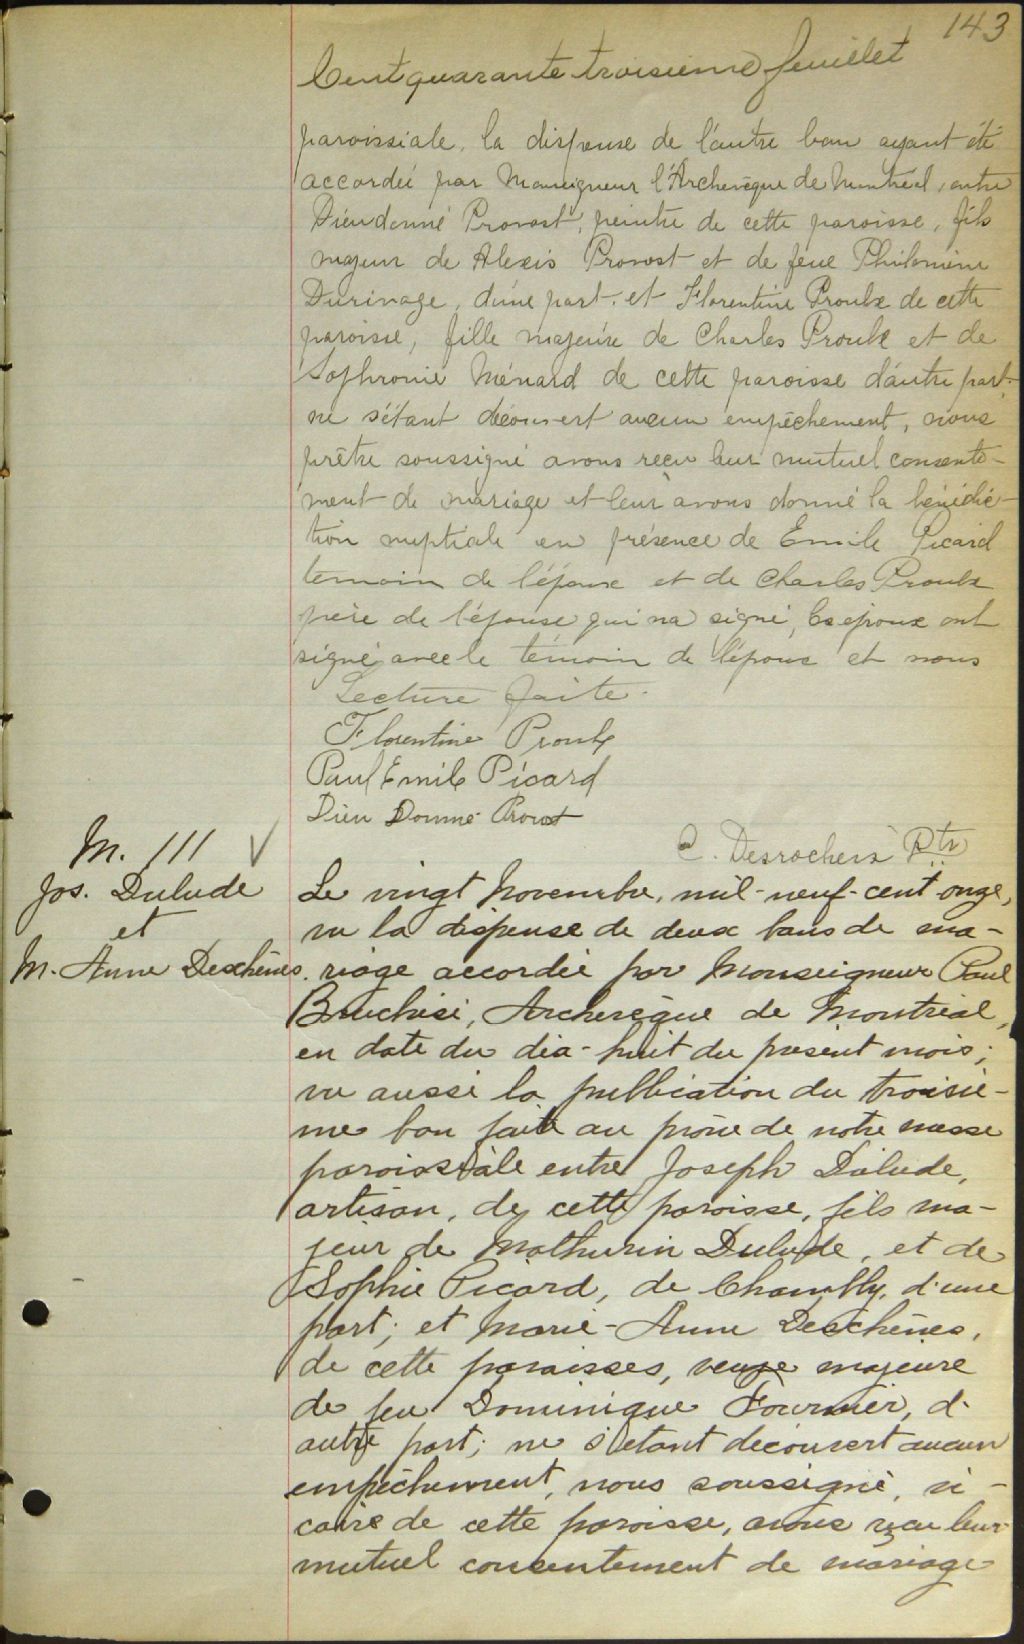 143
Cent quarante troisième feuillet
paroissiale, la dispense de l'autre ban ayant été
accordée par Monseigneur l'Archevêque de Montréal, entre
Dieudonné Provost, peintre de cette paroisse, fils
majeur de Alexis Provost et de feue Philomène
Durivage, d'une part, et Florentine Proulx de cette
paroisse, fille majeure de Charles Proulx et de
Sophronie Ménard de cette paroisse d'autre part,
ne s'étant découvert aucun empêchement, nous
prêtre soussigné avons reçu leur mutuel consente-
ment de mariage et leur avons donné la bénédic-
tion nuptiale en présence de Emile Picard
temoin de l'époux et de Charles Proulx
père de l'épouse qui n'a signé, les époux ont
signé avec le témoin de l'époux et nous
Lecture faite.
Florentine Proulx
Paul Emile Picard
Dieu Donné Provost
C. Desrochers Ptr
M. 111
Jos. Dulude
et
M. Anne Deschênes.
Le vingt Novembre, mil-neuf-cent-onze,
vu la dispense de deux bans de ma-
riage accordée par Monseigneur Paul
Bruchési, Archevêque de Montréal,
en date du dix-huit du présent mois;
vu aussi la publication du troisiè-
me ban faite au prône de notre messe
paroissiale entre Joseph Dulude,
artisan, de cette paroisse, fils ma-
jeur de Mathurin Dulude, et de
Sophie Picard, de Chambly, d'une
part; et Marie-Anne Deschênes,
de cette paroisses, veuve majeure
de feu Dominique Fournier, d'
autre part; ne s'étant découvert aucun
empêchement, nous soussigné, vi-
caire de cette paroisse, avons reçu leur
mutuel consentement de mariage